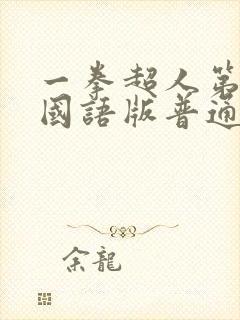 一拳超人第
國語版普通
余龍